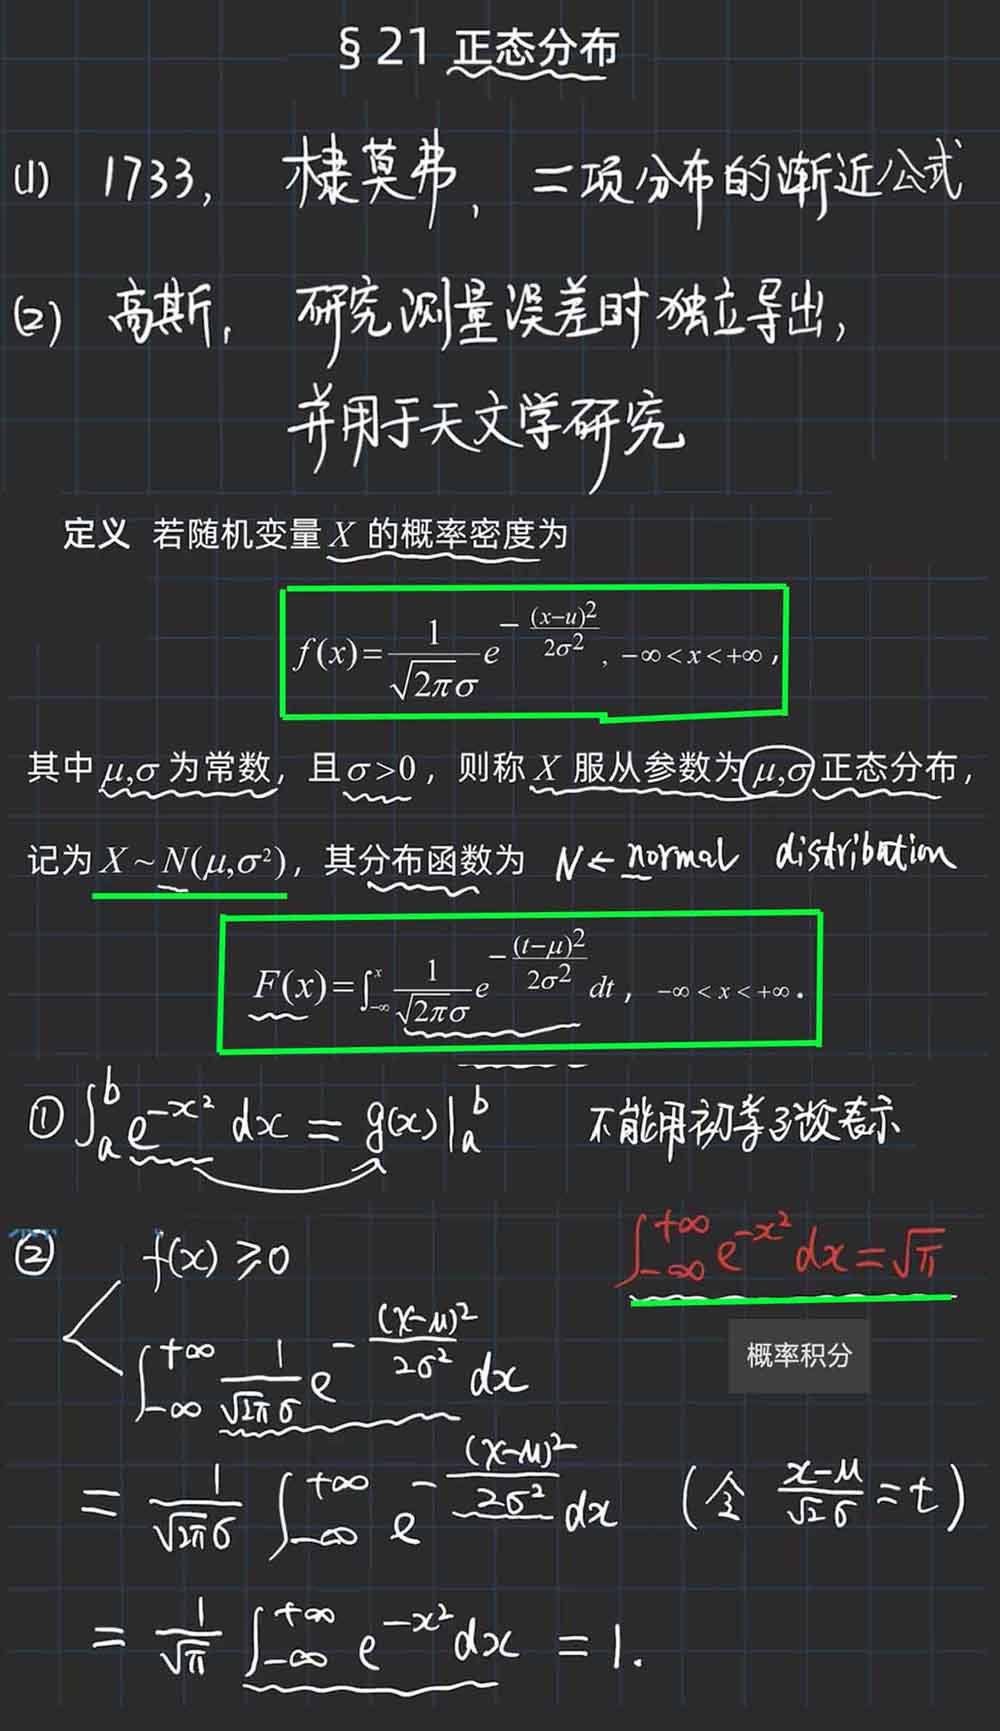 § 21 正态分布
(1) 1733, 棣莫弗, 二项分布的渐近公式
(2) 高斯, 研究测量误差时独立导出,
并用于天文学研究
定义 若随机变量 X 的概率密度为
f(x)=\frac{1}{\sqrt{2π}σ}e^{-\frac{(x-u)^2}{2σ^2}}, -∞<x<+∞,
其中 μ,σ 为常数，且 σ>0，则称 X 服从参数为 μ,σ 正态分布，
记为 X~N(μ,σ²)，其分布函数为 N← normal distribution
F(x)=∫_{-∞}^{x}\frac{1}{\sqrt{2π}σ}e^{-\frac{(t-μ)^2}{2σ^2}}dt, -∞<x<+∞.
① ∫_a^b e^{-x²} dx = g(x)|_a^b 不能用初等函数表示
② f(x) ≥ 0 ∫_{-∞}^{+∞} e^{-x²} dx = √π
概率积分
∫_{-∞}^{+∞} \frac{1}{\sqrt{2π}σ} e^{-\frac{(x-μ)^2}{2σ^2}} dx
= \frac{1}{\sqrt{2π}σ} ∫_{-∞}^{+∞} e^{-\frac{(x-μ)^2}{2σ^2}} dx (令 \frac{x-μ}{\sqrt{2}σ} = t)
= \frac{1}{\sqrt{π}} ∫_{-∞}^{+∞} e^{-x²} dx = 1.